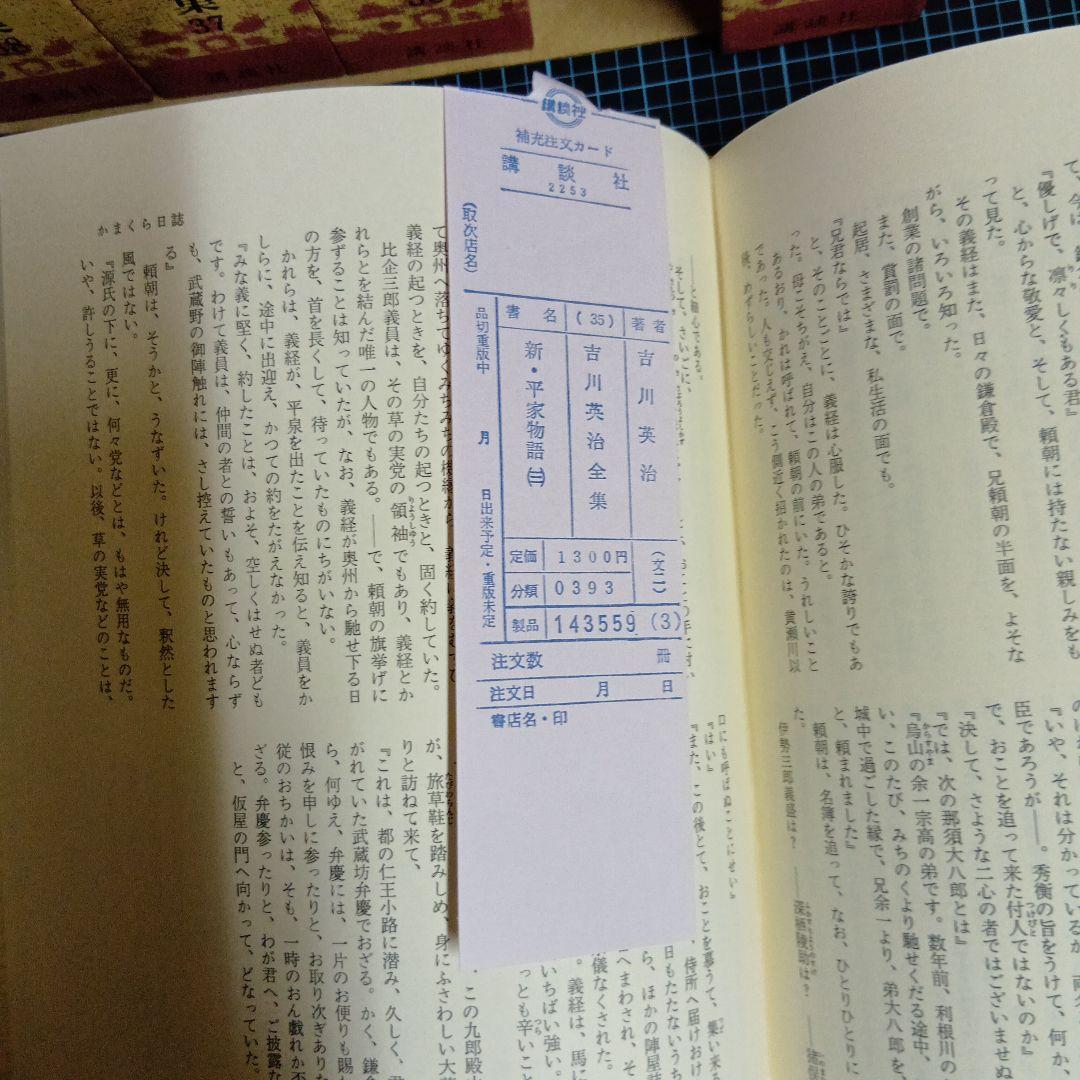 37
講談社
講談社
講談社
講談社
補充注文カード
講談社
2253
(取次店名)
書名
(35)
著者
新・平家物語 ㈢
吉川英治全集
吉川英治
品切重版中 月 日出来予定・重版未定
定価 1300円
(文二)
分類 0393
製品 143559 (3)
注文数 冊
注文日 月 日
書店名・印
『優しげで、凛々しくもある君』
と、心からな敬愛と、そして、頼朝には持たない親しみをも
って見た。
その義経はまた、日々の鎌倉殿で、兄頼朝の半面を、よそな
がら、いろいろ知った。
創業の諸問題で。
また、賞罰の面で。
起居、さまざまな、私生活の面でも。
『兄君ならでは』
と、そのことごとに、義経は心服した。ひそかな誇りでもあ
った。母こそちがえ、自分はこの人の弟であると。
あるおり、かれは呼ばれて、頼朝の前にいた。うれしいこと
であった。人も交じえず、こう側近く招かれたのは、黄瀬川以
後、めずらしいことだった。
『いや、それは分かっているが
臣であろうが――。秀衡の旨をうけて、何か、
で、おことを追って来た付人ではないのか』
『決して、さような二心の者ではございませぬ
『では、次の那須大八郎とは』
『烏山の余一宗高の弟です。数年前、利根川の
い、このたび、みちのくより馳せくだる途中、
城中で過ごした縁で、兄余一より、弟大八郎を、
と、頼まれました』
頼朝は、名簿を追って、なお、ひとりひとりに
た。
伊勢三郎義盛は?
――深栖陵助は?
かまくら日誌
義経の起つときを、自分たちの起つときと、固く約していた。
比企三郎義員は、その草の実党の領袖でもあり、義経とか
れらとを結んだ唯一の人物でもある。――で、頼朝の旗挙げに
参ずることは知っていたが、なお、義経が奥州から馳せ下る日
の方を、首を長くして、待っていたものにちがいない。
かれらは、義経が、平泉を出たことを伝え知ると、義員をか
しらに、途中に出迎え、かつての約をたがえなかった。
『みな義に堅く、約したことは、およそ、空しくはせぬ者ども
です。わけて義員は、仲間の者との誓いもあって、心ならず
も、武蔵野の御陣触れには、さし控えていたものと思われます
る』
頼朝は、そうかと、うなずいた。けれど決して、釈然とした
風ではない。
『源氏の下に、更に、何々党などとは、もはや無用なものだ。
いや、許しうることではない。以後、草の実党などのことは、
口にも呼ばぬことにせい』
『はい』
『また、この後とて、おことを慕うて、集い来る
が、旅草鞋を踏みしめ、身にふさわしい大
りと訪ねて来て、
『これは、都の仁王小路に潜み、久しく、
がれていた武蔵坊弁慶でおざる。かく、鎌
ら、何ゆえ、弁慶には、一片のお便りも賜わ
恨みを申しに参ったりと、お取り次ぎありた
従のおちかいは、そも、一時のおん戯れか否
ざる。弁慶参ったりと、わが君へ、ご披露な
と、仮屋の門へ向かって、どなっていた。